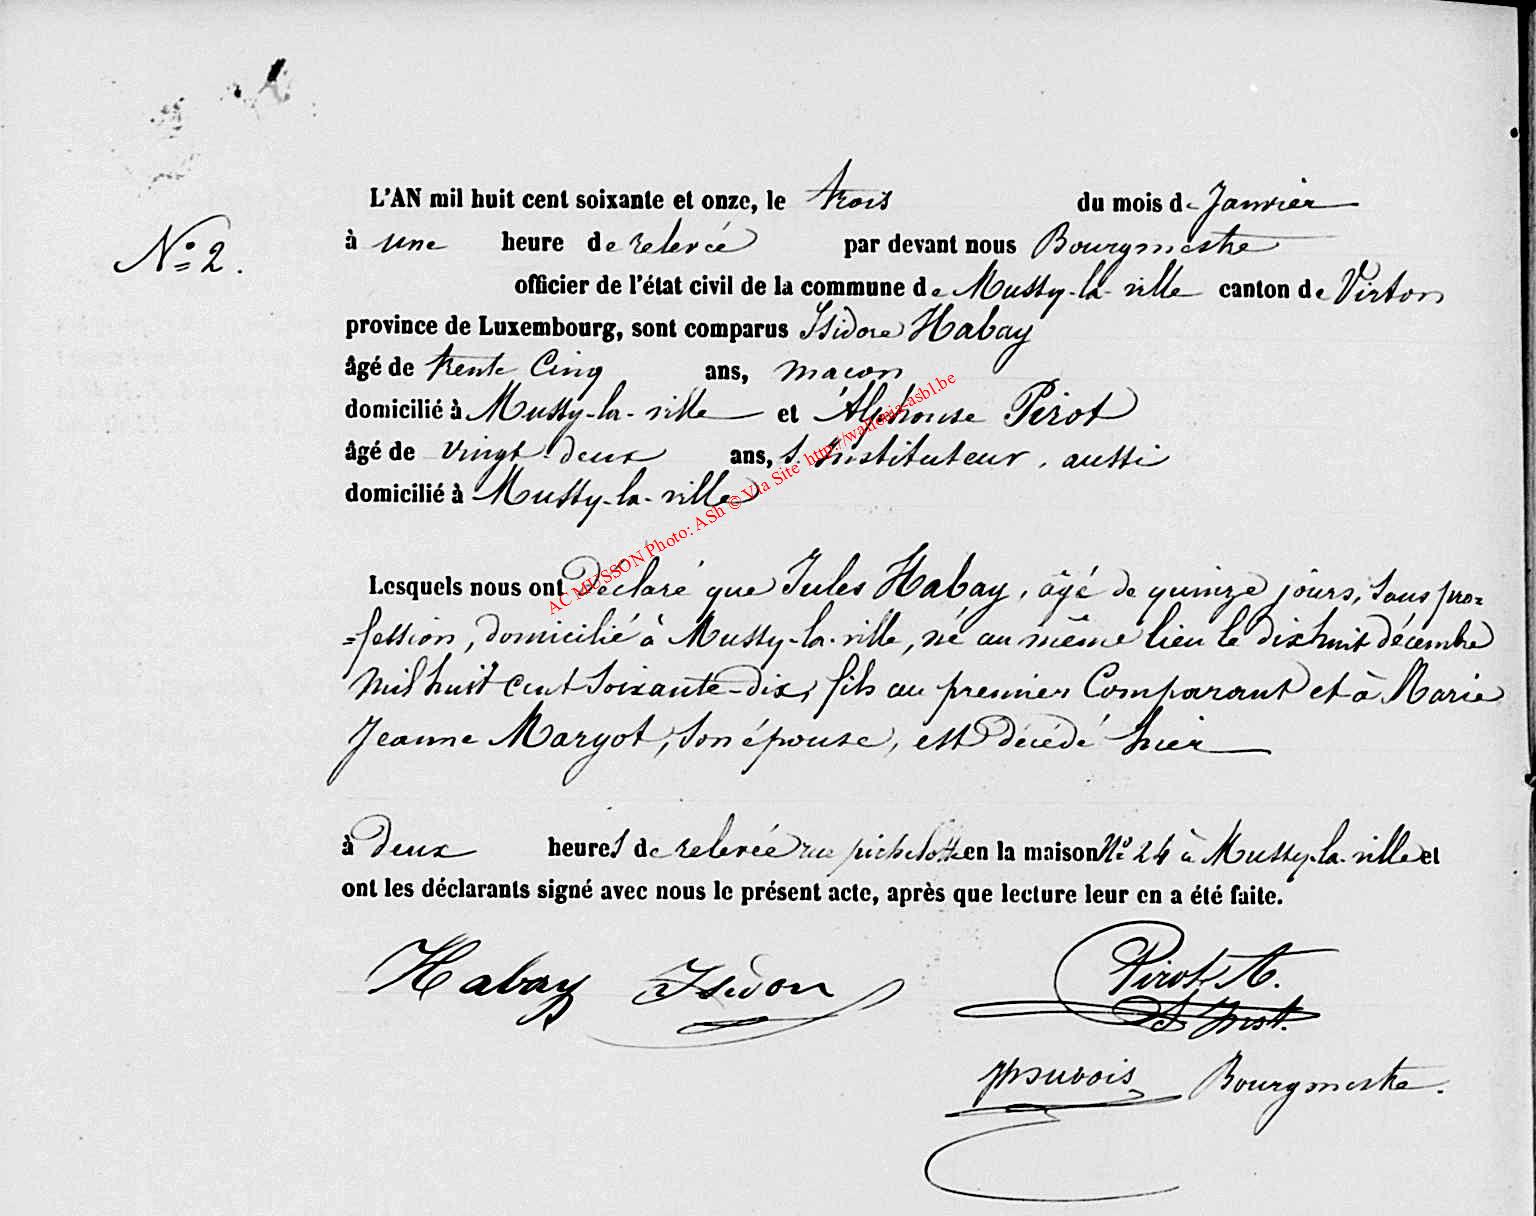 N° 2.
L'AN mil huit cent soixante et onze, le trois du mois de Janvier
à une heure de relevée par devant nous Bourgmestre
officier de l'état civil de la commune de Mussy-la-ville canton de Virton
province de Luxembourg, sont comparus Isidore Habay
âgé de trente cinq ans, maçon
domicilié à Mussy-la-ville et Alphonse Pirot
âgé de vingt-deux ans, s. instituteur, aussi
domicilié à Mussy-la-ville
AC MUSSON Photo: ASh © Via Site http://wallonia-asbl.be
Lesquels nous ont déclaré que Jules Habay, âgé de quinze jours, sans pro=
=fession, domicilié à Mussy-la-ville, né au même lieu le dix huit décembre
mil huit cent soixante-dix, fils au premier Comparant et à Marie
Jeanne Margot, son épouse, est décédé hier
à deux heures de relevée rue pichelotte en la maison N° 24 à Mussy-la-ville et
ont les déclarants signé avec nous le présent acte, après que lecture leur en a été faite.
Habay Isidore Pirot A.
S. Inst.
Bourgmestre.